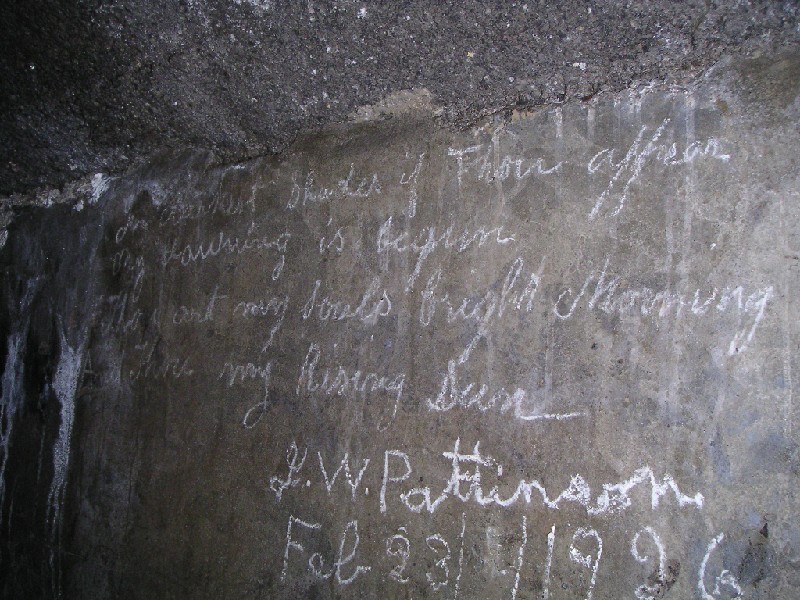 In darkest shades if Thou appear
My dawning is begun
Thou art my Souls bright Morning
my Rising Sun
W. Pattinson
Feb 23/4/1926